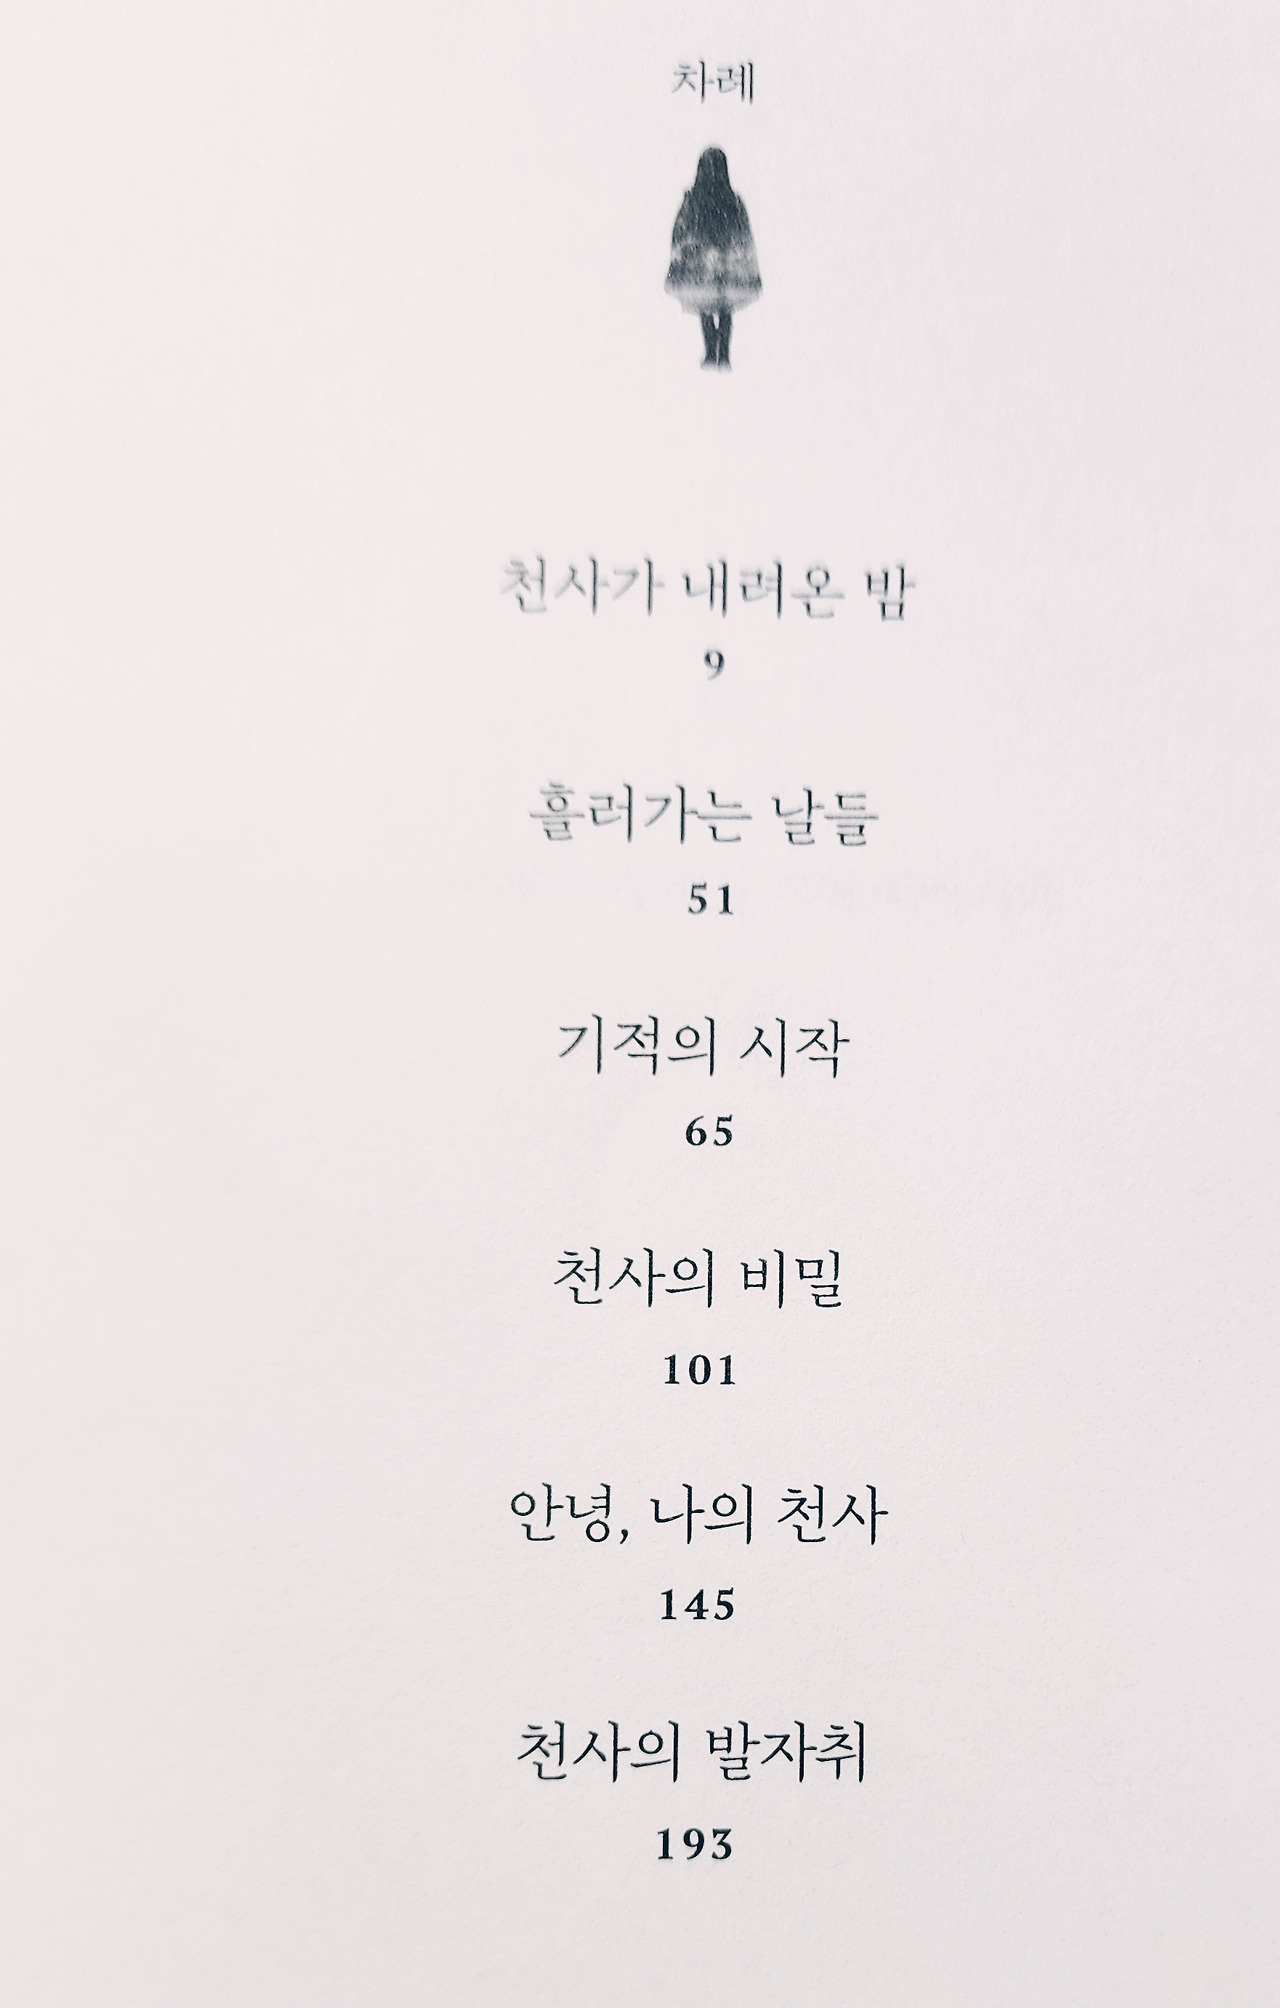 차례
천사가 내려온 밤
9
흘러가는 날들
51
기적의 시작
65
천사의 비밀
101
안녕, 나의 천사
145
천사의 발자취
193